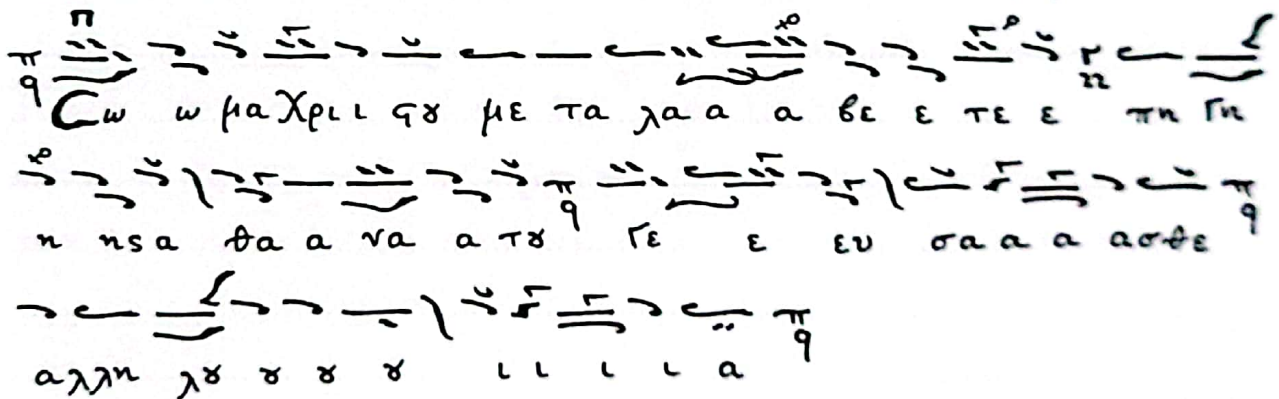 Σω ω μα Χρι ι ϛȣ με τα λα α α βε ε τε ε πη Γη
η ηϛ α θα α να α τȣ Γε ε ευ σα α α ασθε
αλλη λȣ ȣ ȣ ȣ ι ι ι ι α